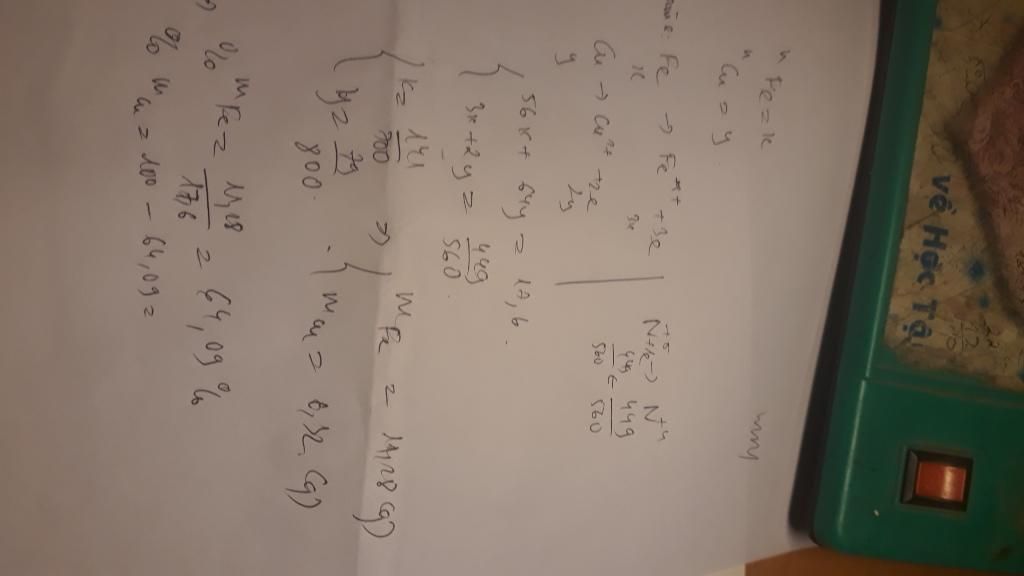 n Fe = x
n Cu = y
Fe → Fe³⁺ + 3e
x 3x
Cu → Cu²⁺ + 2e
y 2y
N⁺⁵ + 1e → N⁺⁴
449/560 ← 449/560
{ 56x + 64y = 17,6.
{ 3x + 2y = 449/560.
{ x = 141/700 ⇒ { m Fe = 11,28 (g)
{ y = 79/800. { m Cu = 6,32 (g)
% m Fe = 11,28/17,6 = 64,09 %
% m Cu = 100 - 64,09 =
VỀ HỌC TẬ